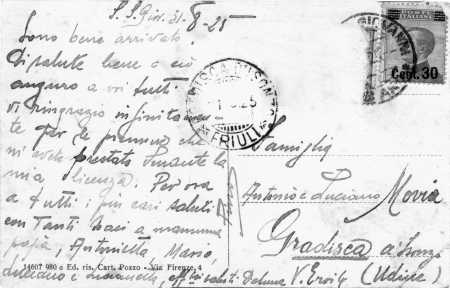 S. S. Giov. 31-8-25
Sono bene arrivato.
Di salute bene e ciò
auguro a voi tutti.
vi ringrazio infinitamen
te per le premure che
mi avete prestato durante la
mia licenza. Per ora
a tutti i più cari saluti
con Tanti baci a mamma
papà, Antonietta, Mario,
saluti
14607 980 e Ed. ris. Cart. Pozzo - Via Firenze, 4
GIOVANNI
Cent. 30
FRIULI
Famiglia
Antonio e Luciano Movia
Gradisca d'Isonzo
(Udine)